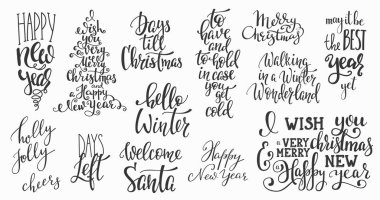 HAPPY
new
year
I
wish
you
a very
very
Merry
Christmas
and a
Happy
New Year
Days
till
Christmas
to
have
and
to hold
in case
you get
cold
Merry
Christmas
Walking
in a Winter
Wonderland
may it be
the BEST
year
yet
holly
jolly
cheers
DAYS
Left
hello
Winter
Welcome
Santa
Happy
New Year
I WISH you
a VERY
MERRY christmas
& Happy NEW
year